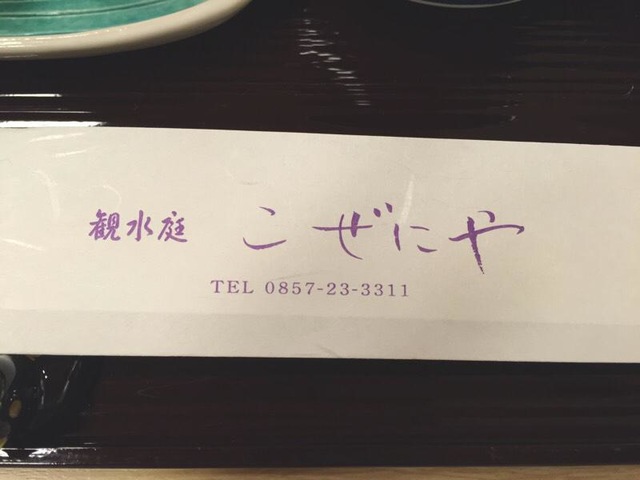 観水庭 こぜにや
TEL 0857-23-3311